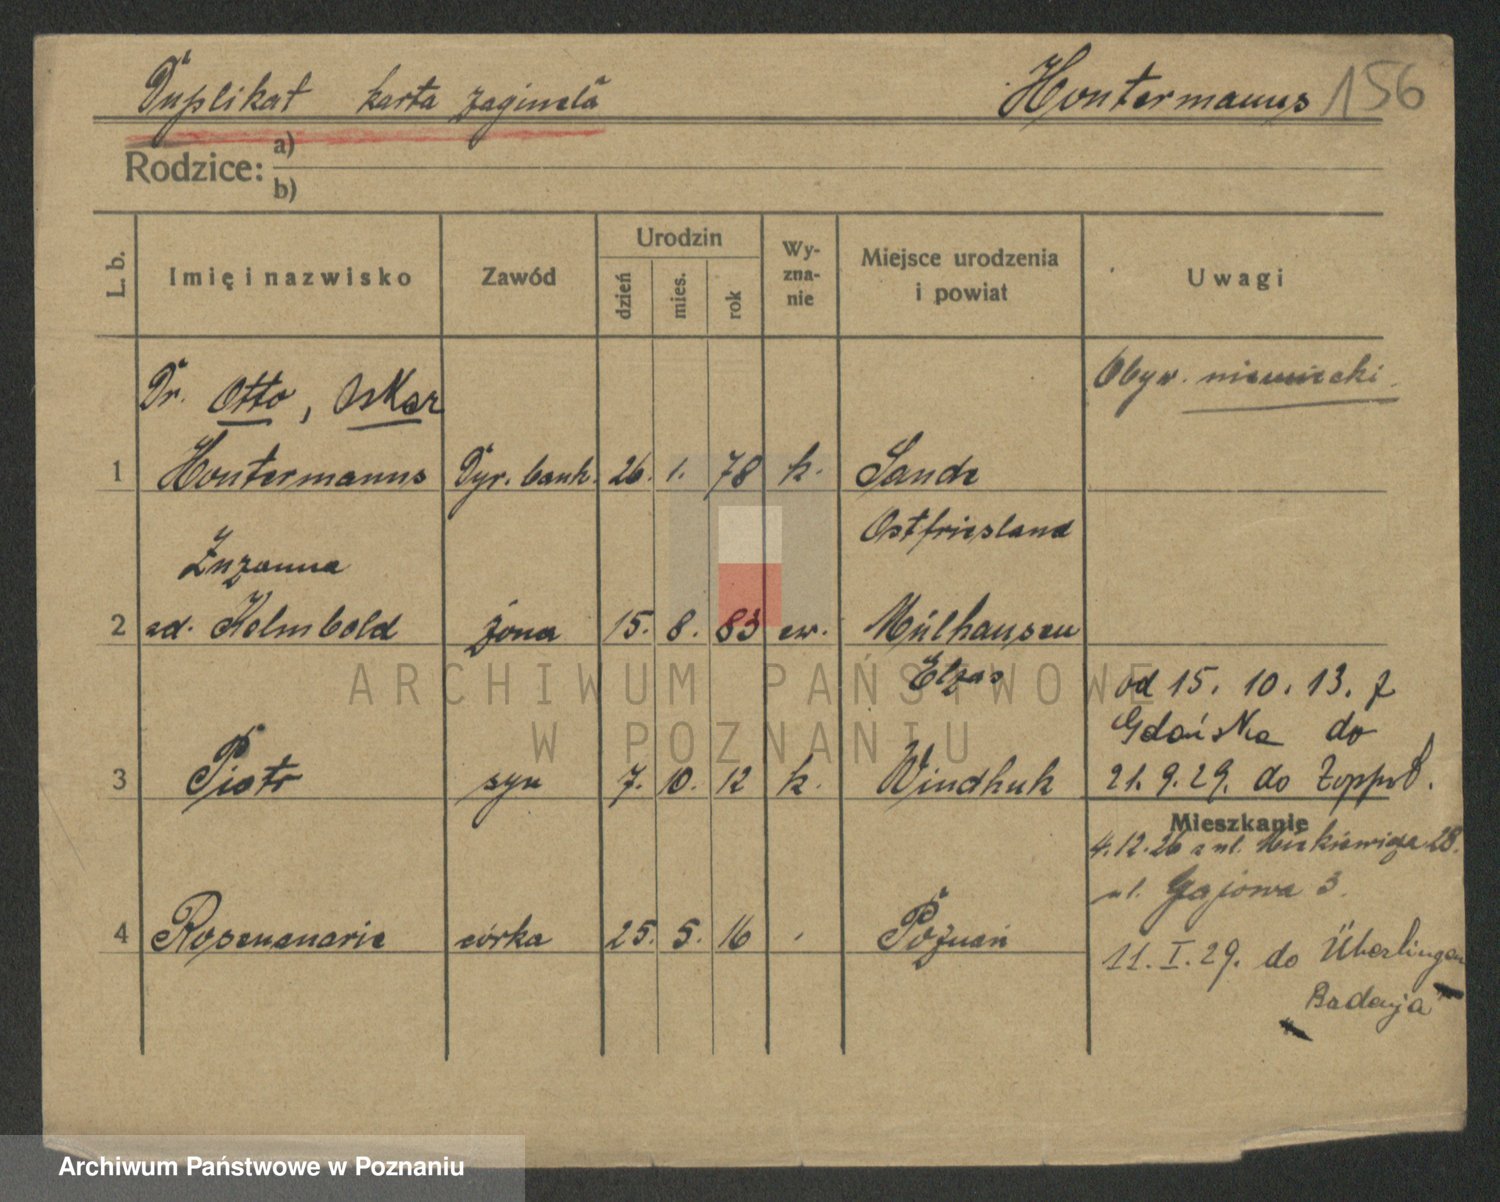 Duplikat karta zaginęła
Hontermanns 156
Rodzice: a)
b)
L. b.
Imię i nazwisko
Zawód
Urodzin
dzień
mies.
rok
Wy-
zna-
nie
Miejsce urodzenia
i powiat
Uwagi
Dr. Otto, Oskar
Obyw. niemiecki.
1 Hontermanns Dyr. bank. 26. 1. 78 k. Sande
Ostfriesland
Zuzanna
2 zd. Helmbold żona 15. 8. 83 ew. Mülhausen
Elzas
od 15. 10. 13. z
Gdańska do
3 Piotr syn 7. 10. 12 k. Windhuk 21. 9. 29. do Zoppot.
Mieszkanie
4. 12. 26 z ul. Mickiewicza 28.
ul. Gajowa 3.
4 Rosemarie córka 25. 5. 16 Poznań
11. I. 29. do Überlingen
Badenja
ARCHIWUM PAŃSTWOWE
W POZNANIU
Archiwum Państwowe w Poznaniu